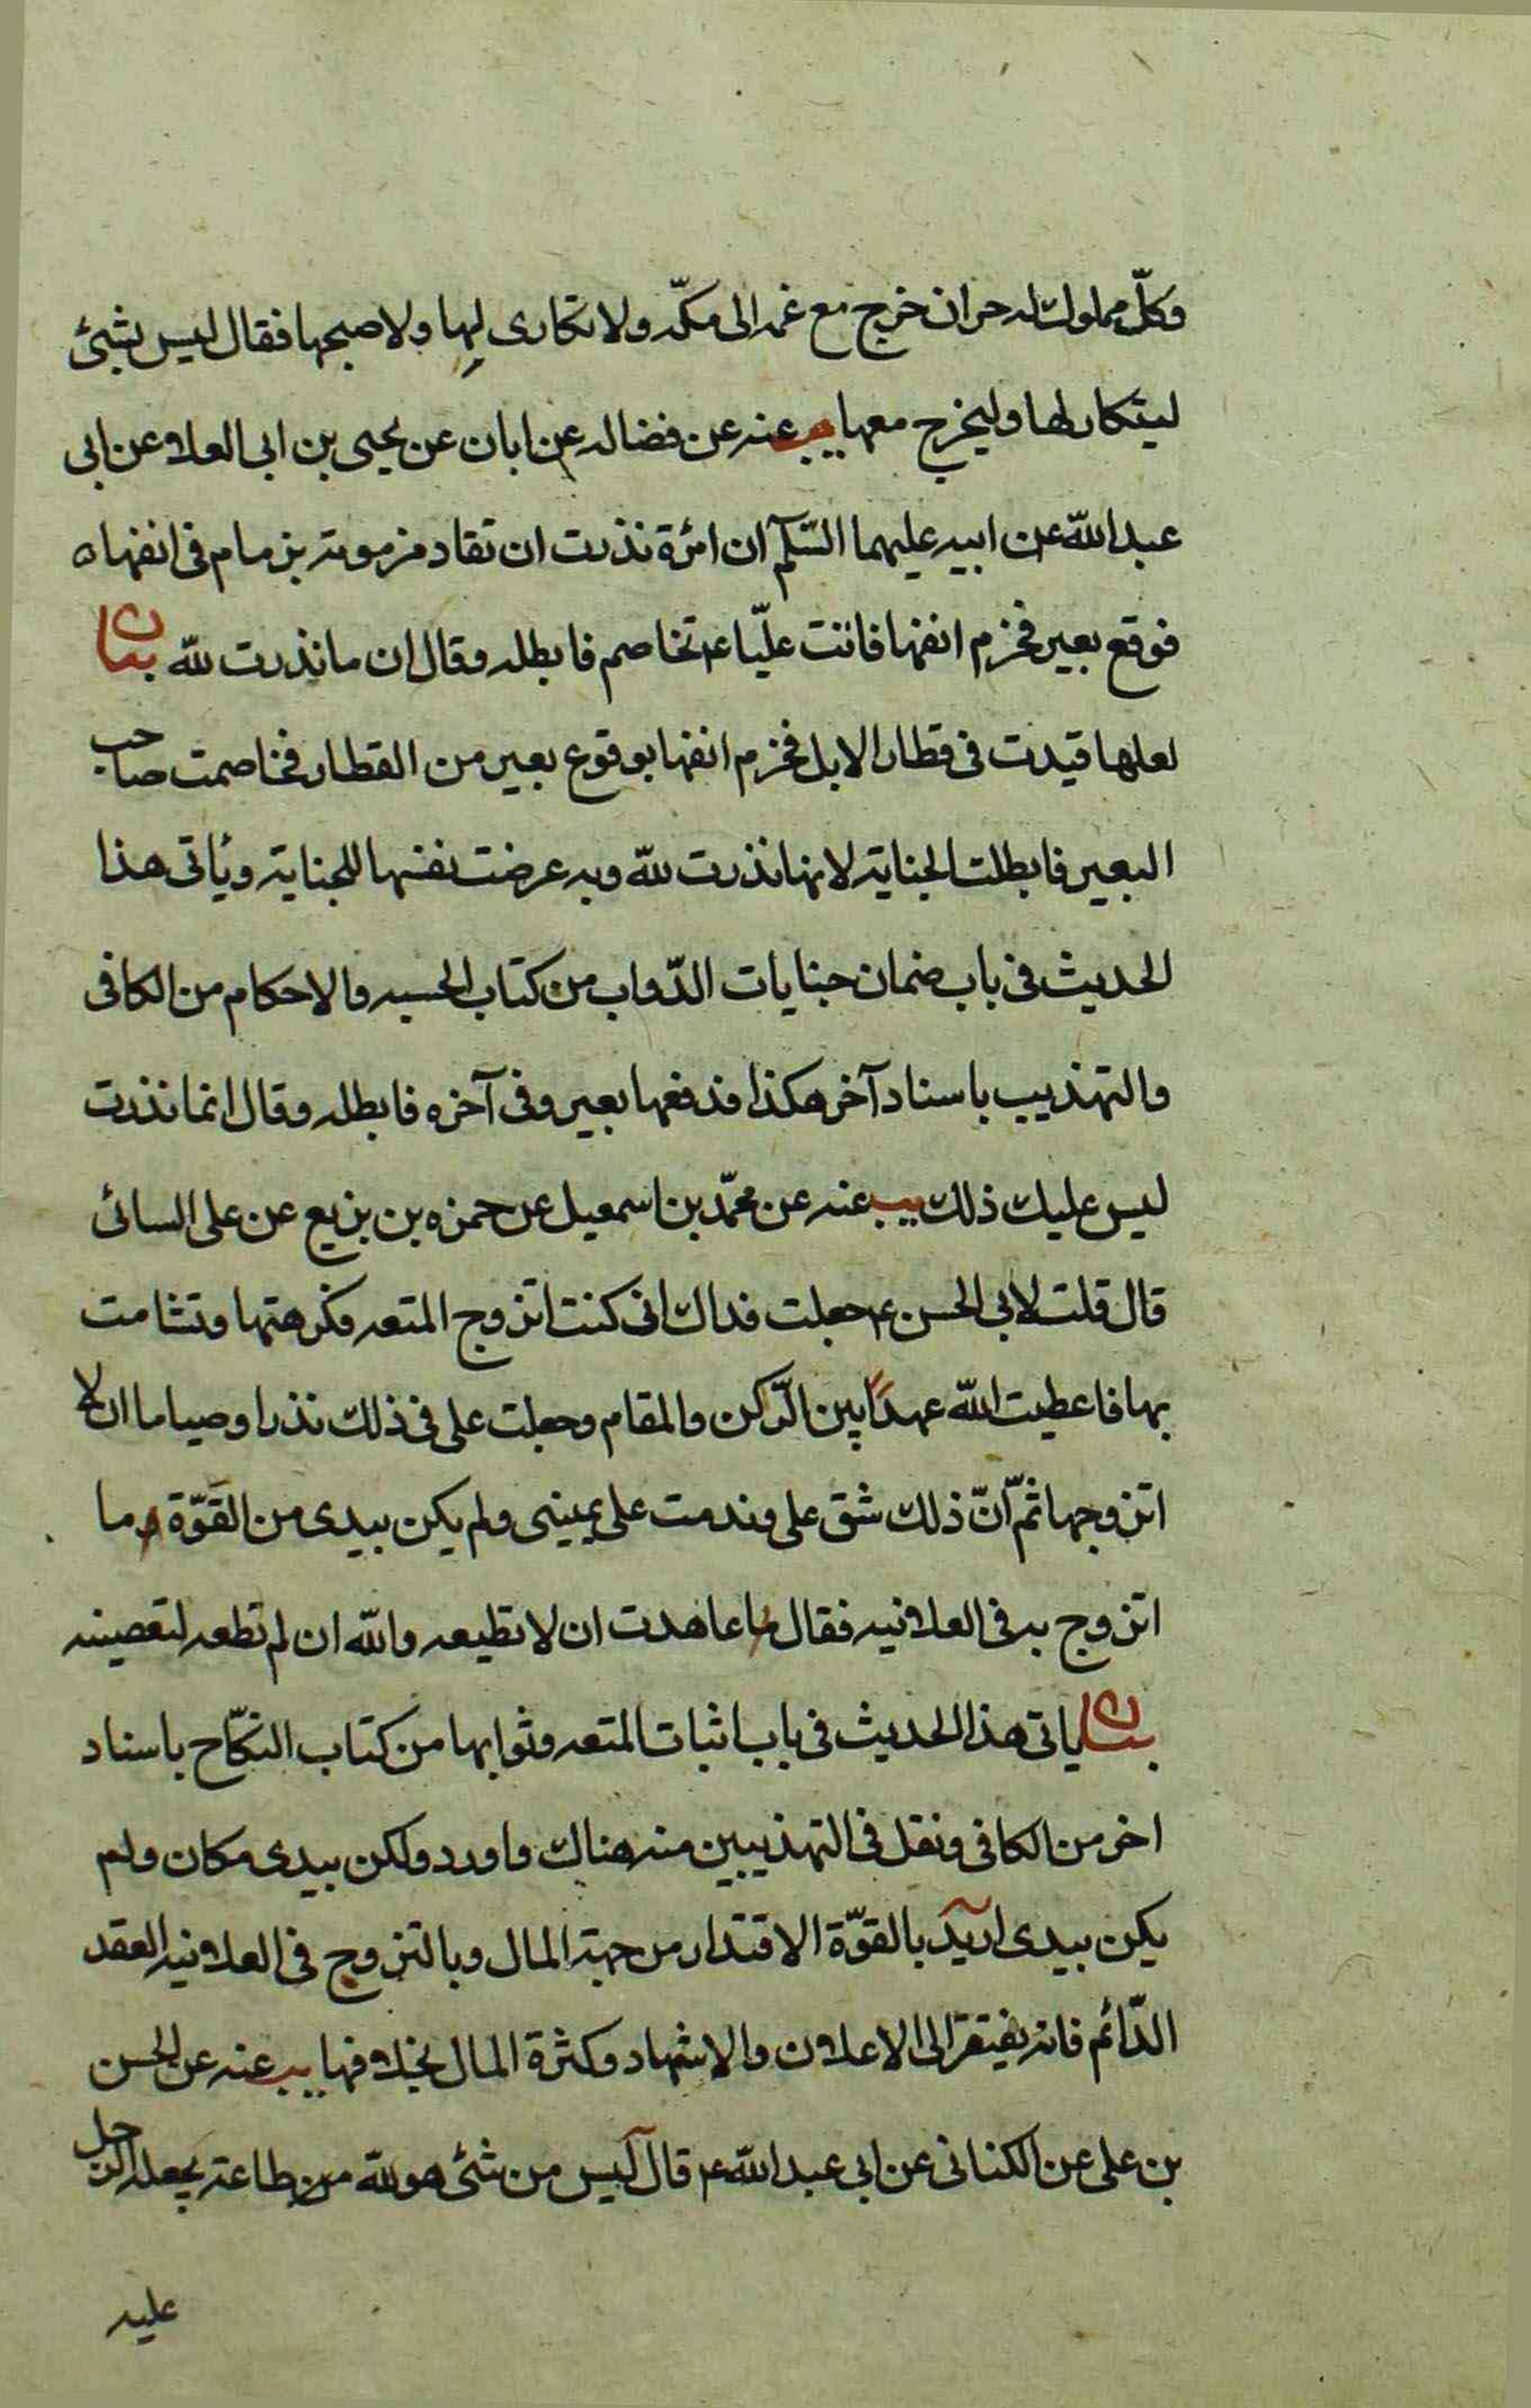 وكلّ مملوك له حر ان خرج مع عمته الى مكّه ولا تكارى لها ولا صحبها فقال ليس بشئ
ليتكار لها وليخرج معها يب عنه عن فضاله عن ابان عن يحيى بن ابى العلاء عن ابى
عبد الله عن ابيه عليهما السّلم آن امرٔة نذرت ان تقاد مزمومة بزمام فى انفها
فوقع بعير فخزم انفها فاتت عليّا ع تخاصم فابطله وقال ان ما نذرت لله بيان
لعلها قيدت فى قطار الابل فخزم انفها بوقوع بعير من القطار فخاصمت صاحب
البعير فابطلت الجناية لانها نذرت لله وبه عرضت نفسها للجناية ويأتى هذا
الحديث فى باب ضمان جنايات الدّواب من كتاب الحسبه والاحكام من الكافى
والتهذيب باسناد آخر هكذا فدفعها بعير وفى آخره فابطله وقال انما نذرت
ليس عليك ذلك يب عنه عن محمّد بن اسمعيل عن حمزه بن بزيع عن على السائى
قال قلت لابى الحسن ع جعلت فداك انى كنت اتزوج المتعه فكرهتها وتشامت
بها فاعطيت الله عهدًا بين الرّكن والمقام وجعلت على فى ذلك نذرا وصياما ان لا
اتزوجها ثمّ انّ ذلك شق على وندمت على يمينى ولم يكن بيدى من القوّة ما
اتزوج به فى العلانيه فقال عاهدت ان لا تطيعه والله ان لم تطعه لتعصينه
بيان ياتى هذا الحديث فى باب اثبات المتعه وثوابها من كتاب النكّاح باسناد
اخر من الكافى ونقل فى التهذيبين منه هناك واورد ولكن بيدى مكان ولم
يكن بيدى اريد بالقوّة الاقتدار من جهة المال وبالتزوج فى العلانيه العقد
الدّائم فانه يفيتقر الى الاعلان والاشهاد وكثرة المال بخلافها يب عنه عن الحسن
بن على عن الكنانى عن ابى عبد الله ع قال ليس من شئ هو لله من طاعة يجعله الرجل
عليه